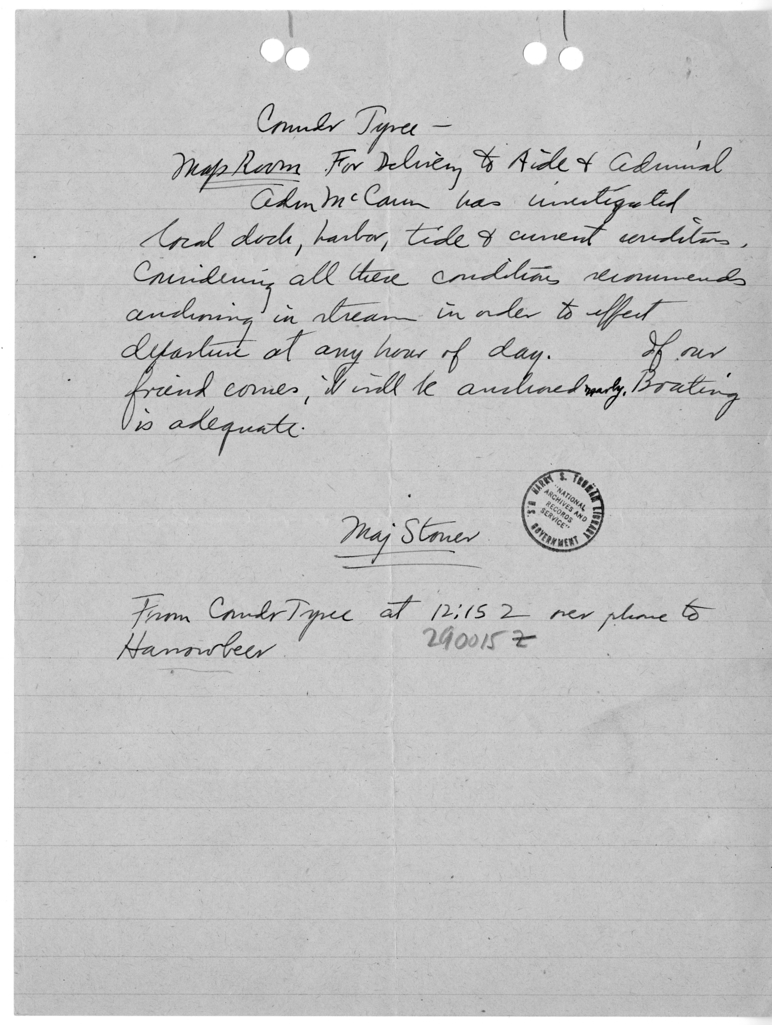 Comdr Tyree —
Map Room For Delivery to Aide & Admiral
Adm McCann has investigated
local dock, harbor, tide & current conditions.
Considering all these conditions recommends
anchoring in stream in order to effect
departure at any hour of day. If our
friend comes, it will be anchored nearby. Boating
is adequate.
HARRY S. TRUMAN LIBRARY
"NATIONAL
ARCHIVES AND
RECORDS
SERVICE"
U.S. GOVERNMENT
Maj Stoner
From Comdr Tyree at 12:15 Z over phone to
Harrowbeer 290015 Z